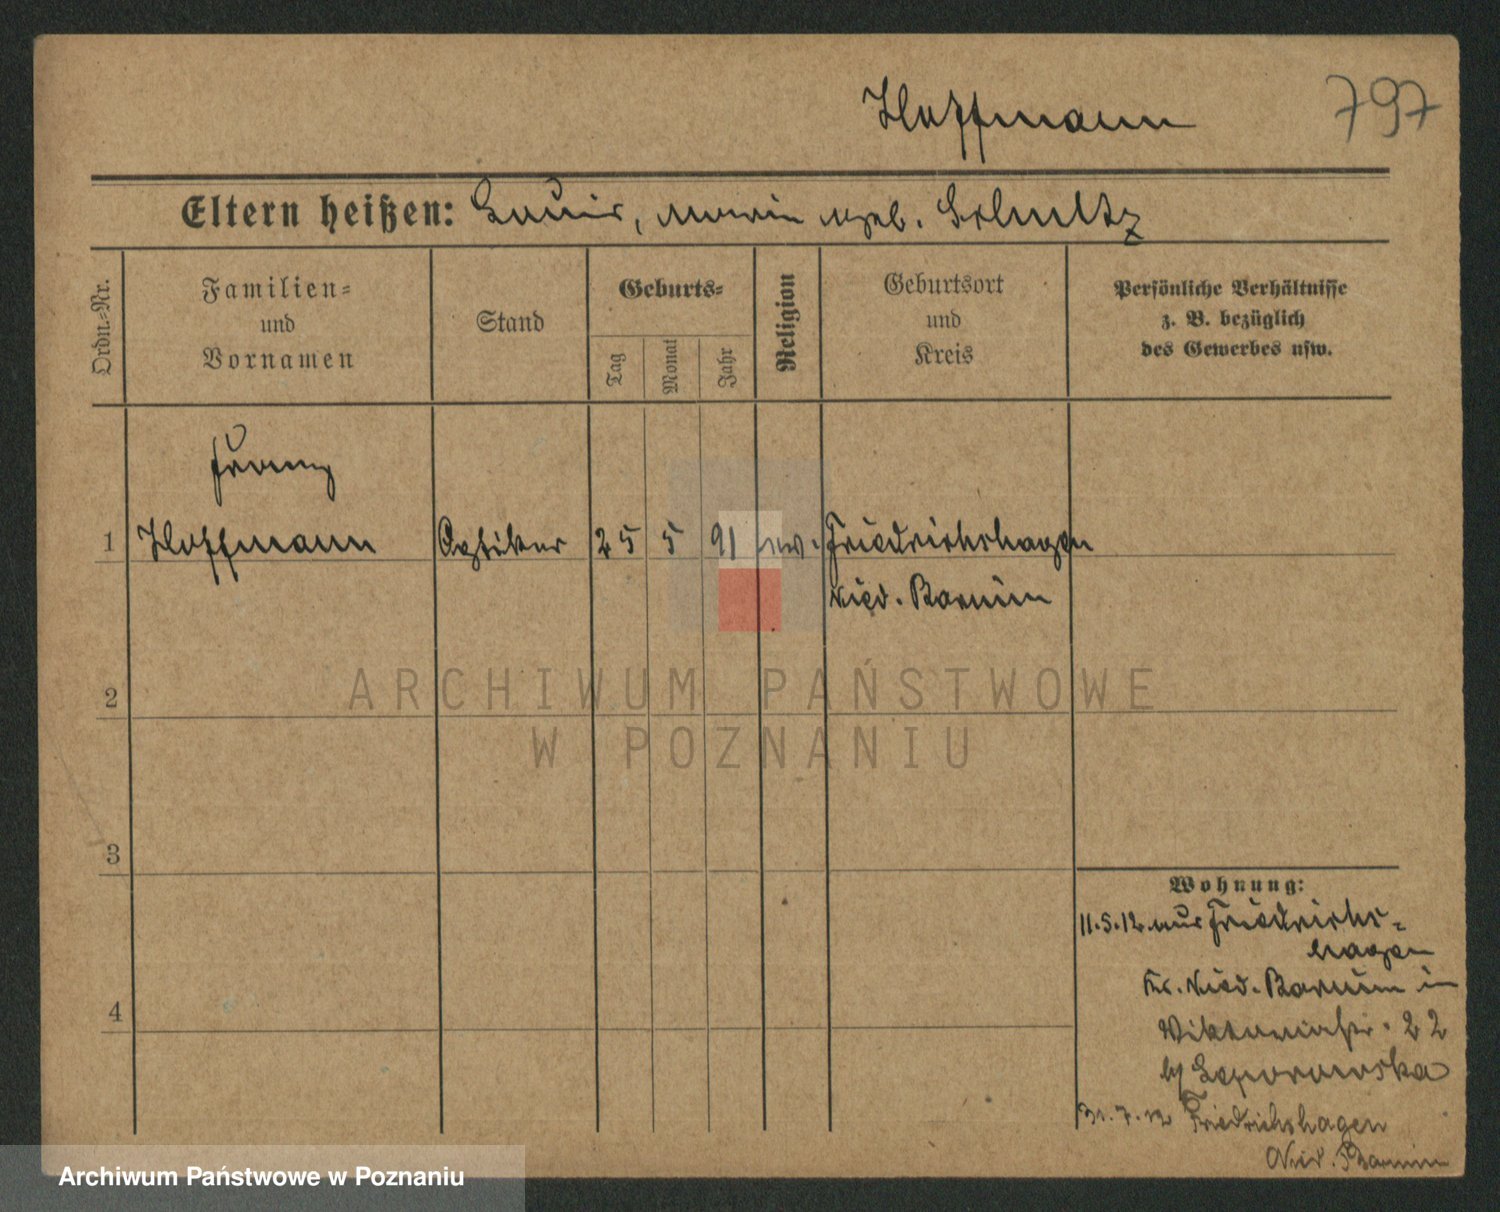 Hoffmann 797
Eltern heißen: Louis, Marie geb. Schultz
Ordn.=Nr.
Familien=
und
Vornamen
Stand
Geburts=
Tag
Monat
Jahr
Religion
Geburtsort
und
Kreis
Persönliche Verhältnisse
z. B. bezüglich
des Gewerbes usw.
Franz
1 Hoffmann Optiker 25 5 91 ev. Friedrichshagen
Nied. Barnim
ARCHIWUM PAŃSTWOWE
2
W POZNANIU
3
Wohnung:
11.5.12 aus Friedrichs-
hagen
Kr. Nied. Barnim in
4
Viktoriastr. 22
b/
31.7.12 Friedrichshagen
Nied. Barnim
Archiwum Państwowe w Poznaniu